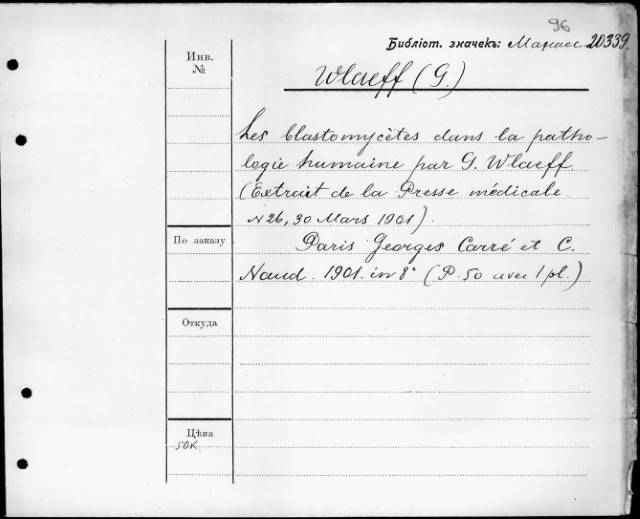 96
Библіот. значекъ: Манасс 20339.
Инв.
№
Wlaeff (G.)
Les blastomycètes dans la patho-
logie humaine par G. Wlaeff
(Extrait de la Presse médicale
N 26, 30 Mars 1901)
По заказу
Paris Georges Carré et C.
Naud. 1901. in 8° (P. 50 avec 1 pl.)
Откуда
Цѣна
50К.